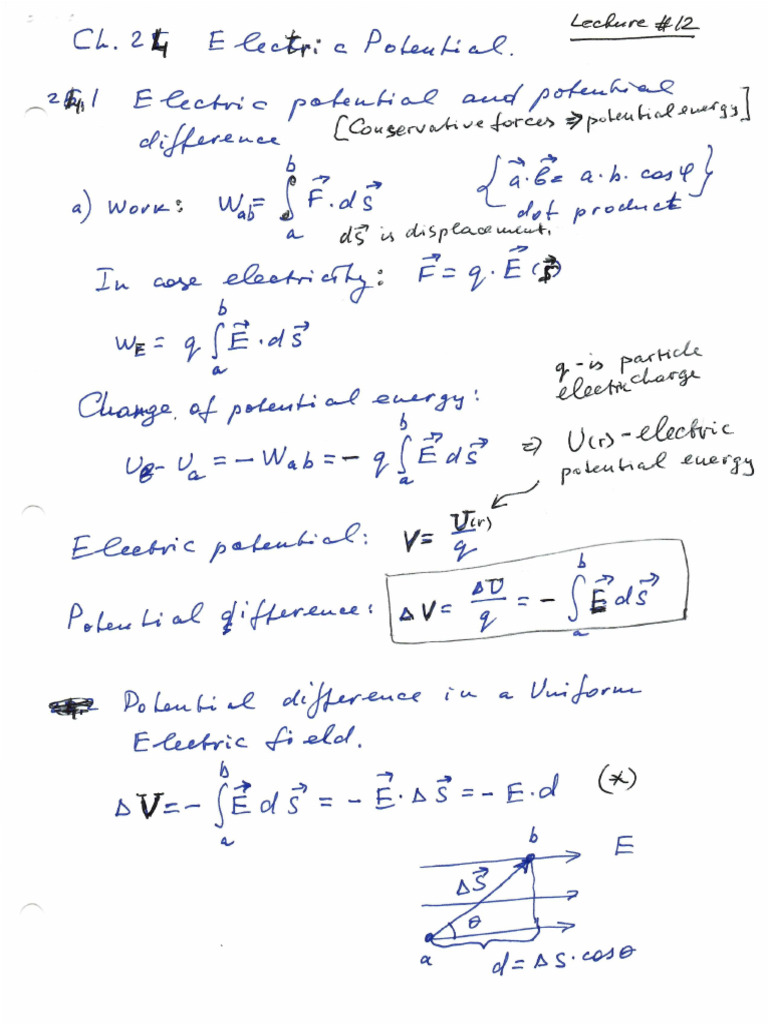 Lecture #12
Ch. 24 Electric Potential.
24.1 Electric potential and potential
difference [Conservative forces ⇒ potential energy]
a) Work: W_ab = ∫_a^b F⃗ · ds⃗ {a⃗ · b⃗ = a · b · cos φ}
dot product
ds⃗ is displacement.
In case electricity: F⃗ = q · E⃗ (r⃗)
W_E = q ∫_a^b E⃗ · ds⃗
q - is particle
electric charge
Change of potential energy:
U_b - U_a = - W_ab = - q ∫_a^b E⃗ ds⃗ ⇒ U(r) - electric
potential energy
Electric potential: V = U(r)/q
Potential difference: ΔV = ΔU/q = - ∫_a^b E⃗ ds⃗
Potential difference in a Uniform
Electric field.
ΔV = - ∫_a^b E⃗ ds⃗ = - E⃗ · ΔS⃗ = - E · d (*)
b E
ΔS⃗
θ
a
d = ΔS · cos θ